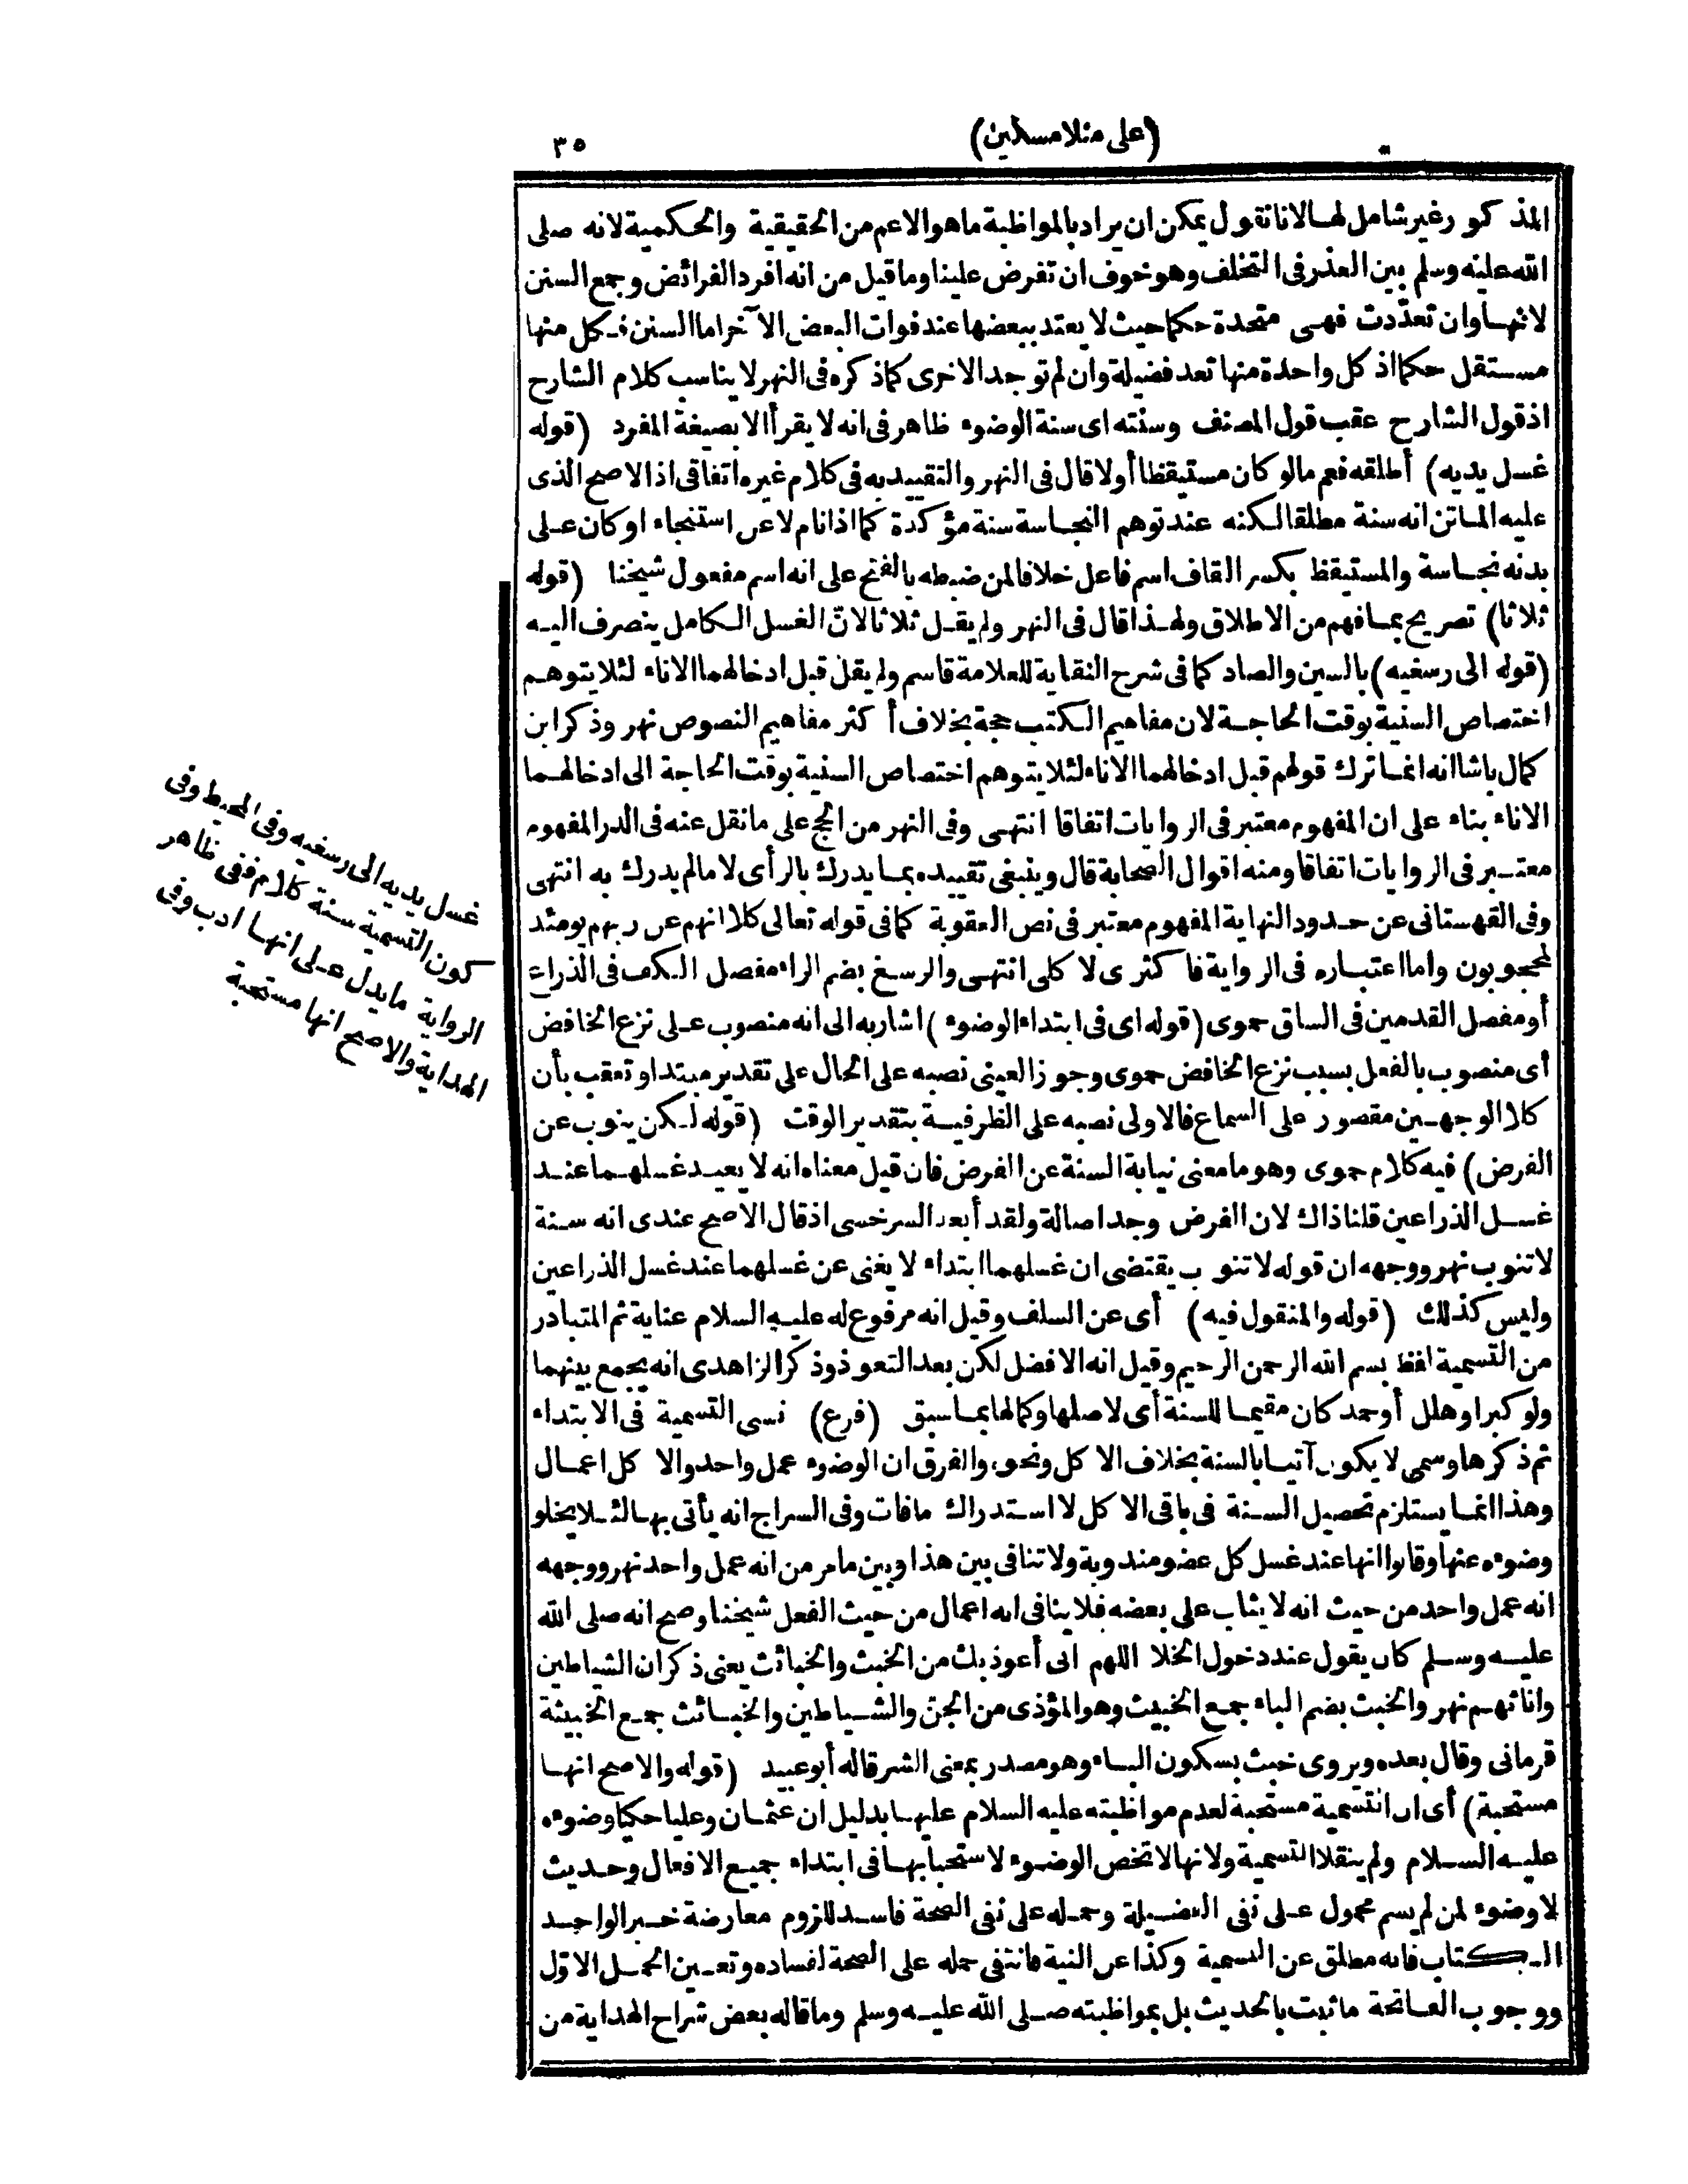 (على منلا مسكين)
٣٥
المذكور غير شامل لها لانا نقول يمكن ان يراد بالمواظبة ما هو الاعم من الحقيقية والحكمية لانه صلى
الله عليه وسلم بين العذر فى التخلف وهو خوف ان تفرض علينا وما قيل من انه افرد الفرائض وجمع السنن
لانها وان تعدّدت فهى متحدة حكما حيث لا يعتد ببعضها عند فوات البعض الآخر اما السنن فكل منها
مستقل حكما اذ كل واحدة منها تعد فضيلة وان لم توجد الاخرى كما ذكره فى النهر لا يناسب كلام الشارح
اذ قول الشارح عقب قول المصنف وسنته اى سنة الوضوء ظاهر فى انه لا يقرأ الا بصيغة المفرد (قوله
غسل يديه) أطلقه فعم ما لو كان مستيقظا أولا قال فى النهر والتقييد به فى كلام غيره اتفاقى اذ الاصح الذى
عليه الماتن انه سنة مطلقا لكنه عند توهم النجاسة سنة مؤكدة كما اذا نام لا عن استنجاء او كان على
بدنه نجاسة والمستيقظ بكسر القاف اسم فاعل خلافا لمن ضبطه بالفتح على انه اسم مفعول شيخنا (قوله
ثلاثا) تصريح بما فهم من الاطلاق ولهذا قال فى النهر ولم يقل ثلاثا لانّ الغسل الكامل ينصرف اليه
(قوله الى رسغيه) بالسين والصاد كما فى شرح النقاية للعلامة قاسم ولم يقل قبل ادخالهما الاناء لئلا يتوهم
اختصاص السنية بوقت الحاجة لان مفاهيم الكتب حجة بخلاف أكثر مفاهيم النصوص نهر وذكر ابن
كمال باشا انه انما ترك قولهم قبل ادخالهما الاناء لئلا يتوهم اختصاص السنية بوقت الحاجة الى ادخالهما
الاناء بناء على ان المفهوم معتبر فى الروايات اتفاقا انتهى وفى النهر من الحج على ما نقل عنه فى الدر المفهوم
معتبر فى الروايات اتفاقا ومنه اقوال الصحابة قال وينبغى تقييده بما يدرك بالرأى لا ما لم يدرك به انتهى
وفى القهستانى عن حدود النهاية المفهوم معتبر فى نص العقوبة كما فى قوله تعالى كلا انهم عن ربهم يومئذ
لمحجوبون واما اعتباره فى الرواية فاكثرى لا كلى انتهى والرسغ بضم الراء مفصل الكف فى الذراع
أو مفصل القدمين فى الساق حموى (قوله اى فى ابتداء الوضوء) اشار به الى انه منصوب على نزع الخافض
أى منصوب بالفعل بسبب نزع الخافض حموى وجوز العينى نصبه على الحال على تقدير مبتدا وتعقب بأن
كلا الوجهين مقصور على السماع فالاولى نصبه على الظرفية بتقدير الوقت (قوله لكن ينوب عن
الفرض) فيه كلام حموى وهو ما معنى نيابة السنة عن الفرض فان قيل معناه انه لا يعيد غسلهما عند
غسل الذراعين قلنا ذاك لان الفرض وجد اصالة ولقد أبعد السرخسى اذ قال الاصح عندى انه سنة
لا تنوب نهر ووجهه ان قوله لا تنوب يقتضى ان غسلهما ابتداء لا يغنى عن غسلهما عند غسل الذراعين
وليس كذلك (قوله والمنقول فيه) أى عن السلف وقيل انه مرفوع له عليه السلام عناية ثم المتبادر
من التسمية لفظ بسم الله الرحمن الرحيم وقيل انه الافضل لكن بعد التعوذ وذكر الزاهدى انه يجمع بينهما
ولو كبر او هلل أو حمد كان مقيما للسنة أى لاصلها وكمالها بما سبق (فرع) نسى التسمية فى الابتداء
ثم ذكرها وسمى لا يكون آتيا بالسنة بخلاف الاكل ونحوه والفرق ان الوضوء عمل واحد والاكل اعمال
وهذا انما يستلزم تحصيل السنة فى باقى الاكل لا استدراك ما فات وفى السراج انه يأتى بها لئلا يخلو
وضوءه عنها وقالوا انها عند غسل كل عضو مندوبة ولا تنافى بين هذا وبين ما مر من انه عمل واحد نهر ووجهه
انه عمل واحد من حيث انه لا يثاب على بعضه فلا ينافى انه اعمال من حيث الفعل شيخنا وصح انه صلى الله
عليه وسلم كان يقول عند دخول الخلا اللهم انى أعوذ بك من الخبث والخبائث يعنى ذكران الشياطين
واناثهم نهر والخبث بضم الباء جمع الخبيث وهو المؤذى من الجن والشياطين والخبائث جمع الخبيثة
قرمانى وقال بعده ويروى خبث بسكون الباء وهو مصدر بمعنى الشر قاله أبو عبيد (قوله والاصح انها
مستحبة) أى ان التسمية مستحبة لعدم مواظبته عليه السلام عليها بدليل ان عثمان وعليا حكيا وضوءه
عليه السلام ولم ينقلا التسمية ولانها لا تخص الوضوء لاستحبابها فى ابتداء جميع الافعال وحديث
لا وضوء لمن لم يسم محمول على نفى الفضيلة وحمله على نفى الصحة فاسد للزوم معارضة خبر الواحد
الكتاب فانه مطلق عن التسمية وكذا عن النية فانتفى حمله على الصحة لفساده وتعين الحمل الاوّل
ووجوب الفاتحة ما ثبت بالحديث بل بمواظبته صلى الله عليه وسلم وما قاله بعض شراح الهداية من
غسل يديه الى رسغيه وفى المحيط وفى
كون التسمية سنة كلام ففى ظاهر
الرواية ما يدل على انها ادب وفى
الهداية والاصح انها مستحبة